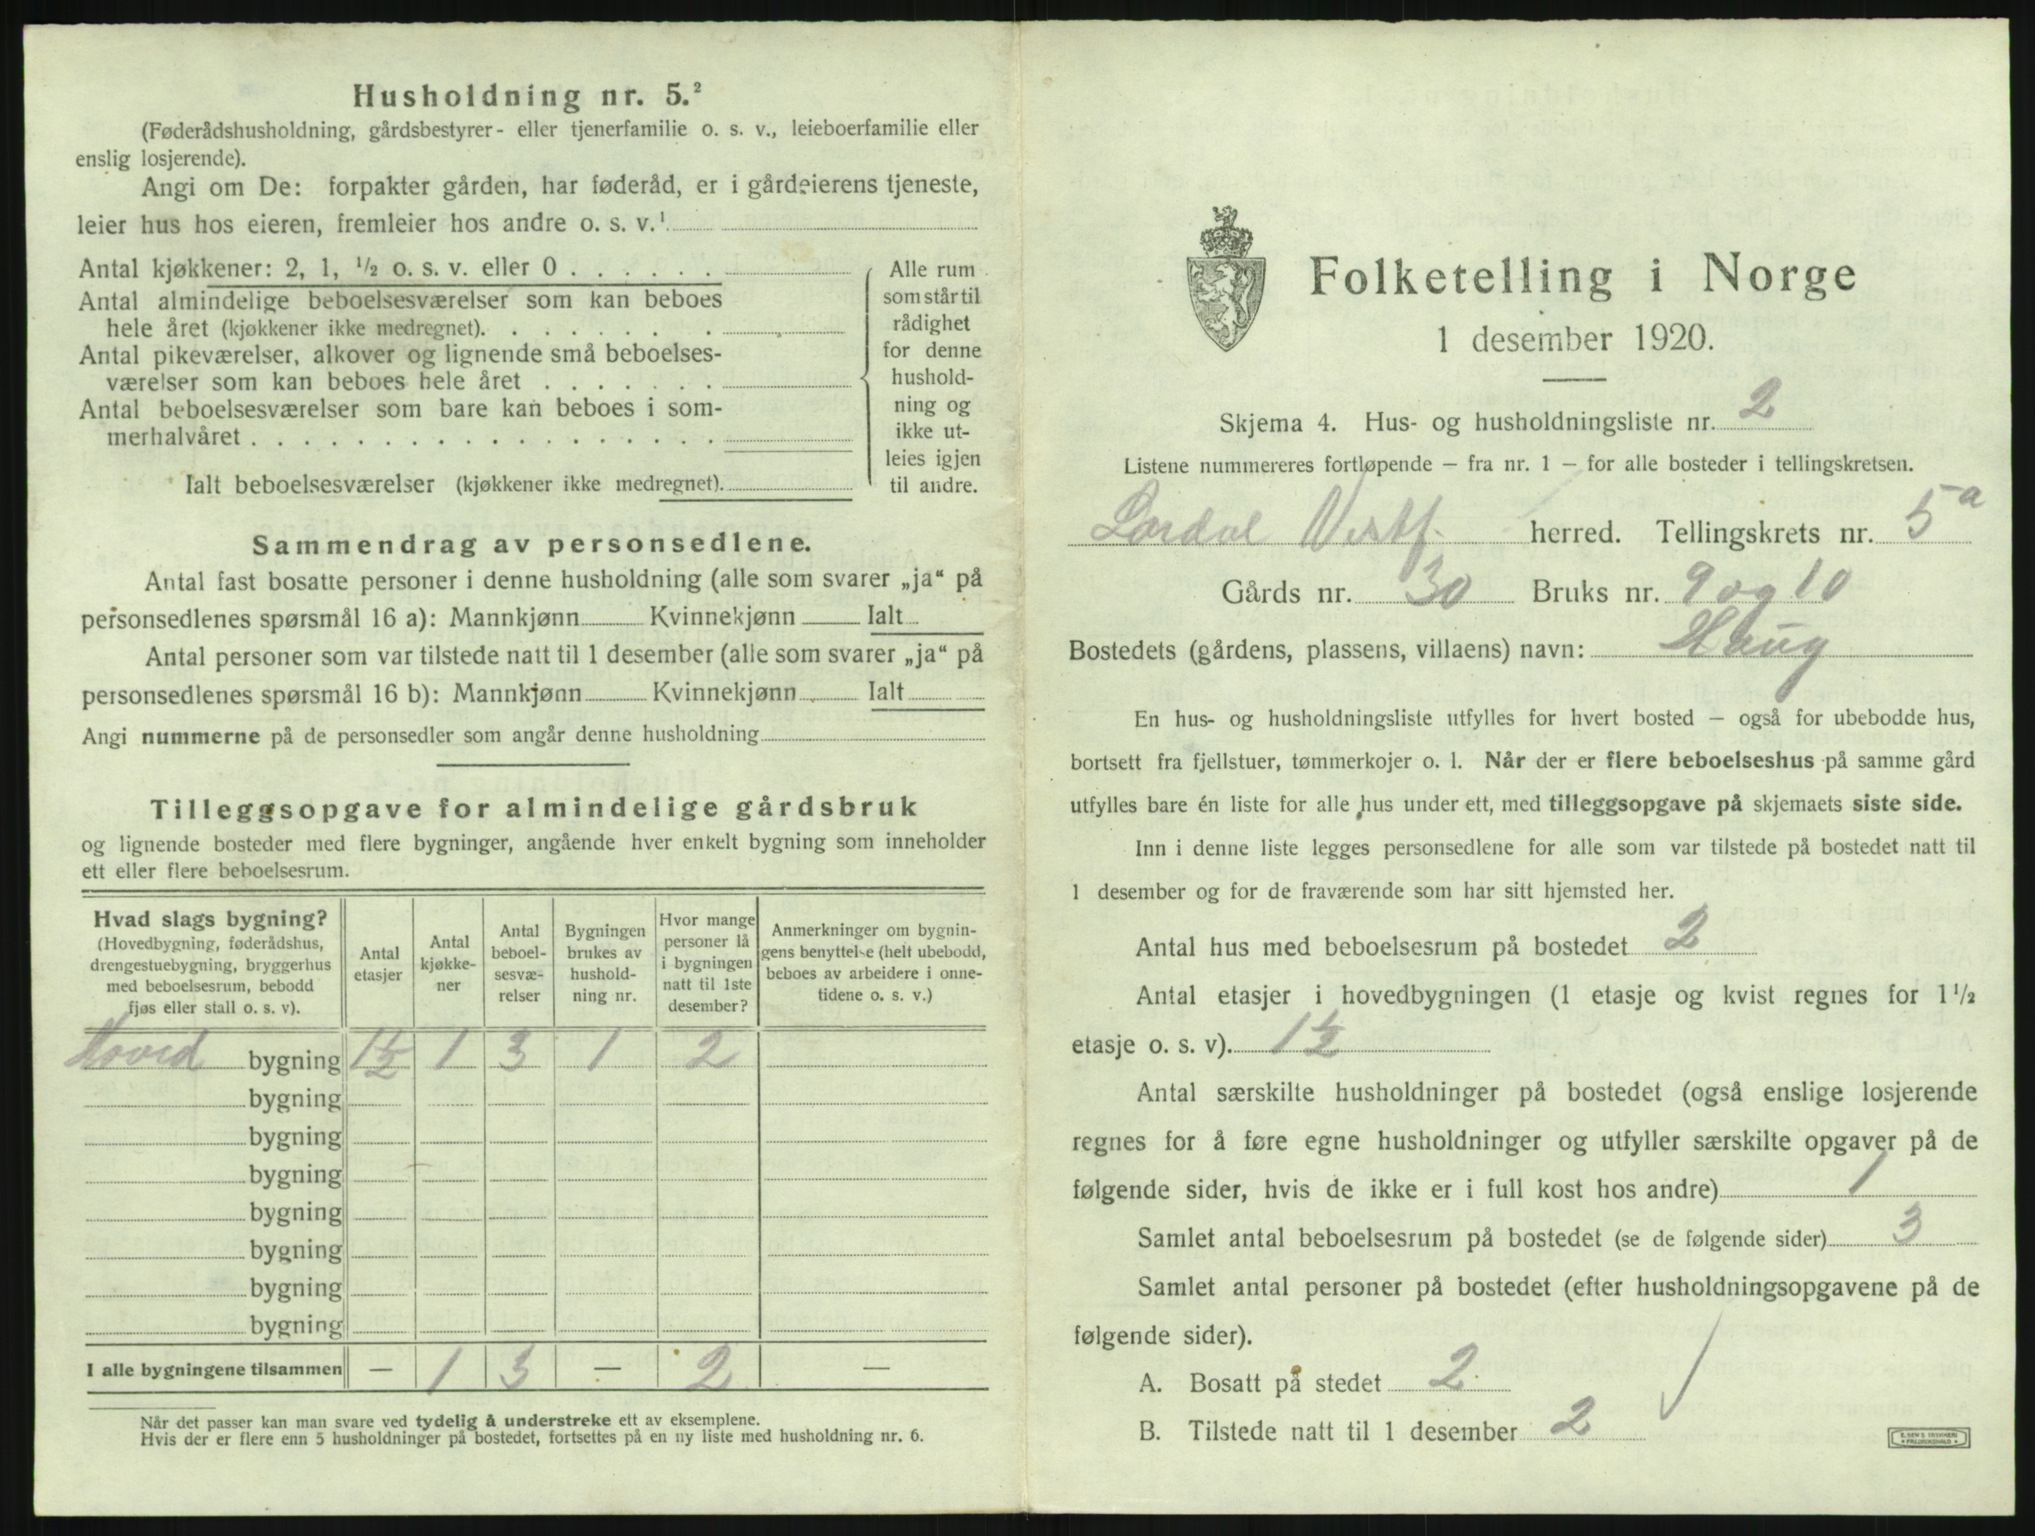 Husholdning nr. 5.²
(Føderådshusholdning, gårdsbestyrer- eller tjenerfamilie o. s. v., leieboerfamilie eller
enslig losjerende).
Angi om De: forpakter gården, har føderåd, er i gårdeierens tjeneste,
leier hus hos eieren, fremleier hos andre o. s. v.¹
Antal kjøkkener: 2, 1, ½ o. s. v. eller 0 . . . . . .
Antal almindelige beboelsesværelser som kan beboes
hele året (kjøkkener ikke medregnet). . . . . . . .
Antal pikeværelser, alkover og lignende små beboelses-
værelser som kan beboes hele året . . . . . . .
Antal beboelsesværelser som bare kan beboes i som-
merhalvåret . . . . . . . . . . . . . . . . . .
Ialt beboelsesværelser (kjøkkener ikke medregnet).
Alle rum
som står til
rådighet
for denne
hushold-
ning og
ikke ut-
leies igjen
til andre.
Sammendrag av personsedlene.
Antal fast bosatte personer i denne husholdning (alle som svarer „ja“ på
personsedlenes spørsmål 16 a): Mannkjønn Kvinnekjønn Ialt
Antal personer som var tilstede natt til 1 desember (alle som svarer „ja“ på
personsedlenes spørsmål 16 b): Mannkjønn Kvinnekjønn Ialt
Angi nummerne på de personsedler som angår denne husholdning
Tilleggsopgave for almindelige gårdsbruk
og lignende bosteder med flere bygninger, angående hver enkelt bygning som inneholder
ett eller flere beboelsesrum.
Hvad slags bygning?
(Hovedbygning, føderådshus,
drengestuebygning, bryggerhus
med beboelsesrum, bebodd
fjøs eller stall o. s. v).
Antal
etasjer
Antal
kjøkke-
ner
Antal
beboel-
sesvæ-
relser
Bygningen
brukes av
hushold-
ning nr.
Hvor mange
personer lå
i bygningen
natt til 1ste
desember?
Anmerkninger om bygnin-
gens benyttelse (helt ubebodd,
beboes av arbeidere i onne-
tidene o. s. v.)
Hoved bygning 1½ 1 3 1 2
bygning
bygning
bygning
bygning
bygning
bygning
bygning
I alle bygningene tilsammen — 1 3 — 2 —
Når det passer kan man svare ved tydelig å understreke ett av eksemplene.
Hvis der er flere enn 5 husholdninger på bostedet, fortsettes på en ny liste med husholdning nr. 6.
Folketelling i Norge
1 desember 1920.
Skjema 4. Hus- og husholdningsliste nr. 2
Listene nummereres fortløpende – fra nr. 1 – for alle bosteder i tellingskretsen.
Lardal Vestf. herred. Tellingskrets nr. 5a
Gårds nr. 30 Bruks nr. 9 og 10
Bostedets (gårdens, plassens, villaens) navn: Haug
En hus- og husholdningsliste utfylles for hvert bosted – også for ubebodde hus,
bortsett fra fjellstuer, tømmerkojer o. l. Når der er flere beboelseshus på samme gård
utfylles bare én liste for alle hus under ett, med tilleggsopgave på skjemaets siste side.
Inn i denne liste legges personsedlene for alle som var tilstede på bostedet natt til
1 desember og for de fraværende som har sitt hjemsted her.
Antal hus med beboelsesrum på bostedet 2
Antal etasjer i hovedbygningen (1 etasje og kvist regnes for 1½
etasje o. s. v). 1½
Antal særskilte husholdninger på bostedet (også enslige losjerende
regnes for å føre egne husholdninger og utfyller særskilte opgaver på de
følgende sider, hvis de ikke er i full kost hos andre) 1
Samlet antal beboelsesrum på bostedet (se de følgende sider) 3
Samlet antal personer på bostedet (efter husholdningsopgavene på de
følgende sider).
A. Bosatt på stedet 2
B. Tilstede natt til 1 desember 2